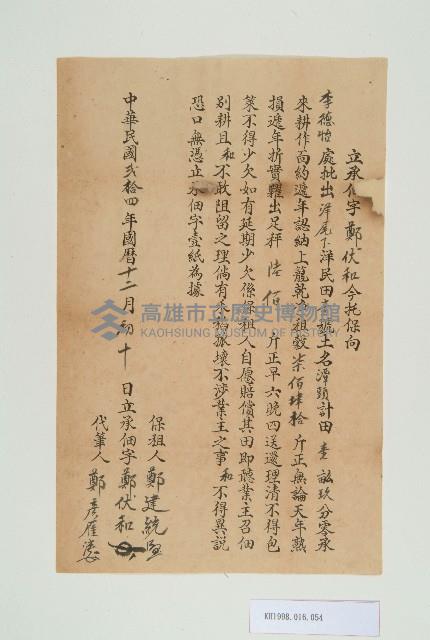 立承佃字鄭伏和今托保向
李德怡處批出洋尾下洋民田壹號土名潭頭計田壹畝玖分零承
來耕作面約遞年認納上龍乾淨租穀柒佰肆拾斤正無論天年熟
損遞年折實糶出足秤陸佰斤正早六晚四送還理清不得包
菜不得少欠如有延期少欠係保租人自愿賠償其田即聽業主召佃
別耕且和不敢阻留之理倘有不揩損壞不涉業主之事和不得異說
恐口無憑立承佃字壹紙為據
中華民國弍拾四年國曆十二月初十日立承佃字鄭伏和
保租人鄭建統
代筆人鄭彥
高雄市立歷史博物館
KAOHSIUNG MUSEUM OF HISTORY
KH1998.016.054